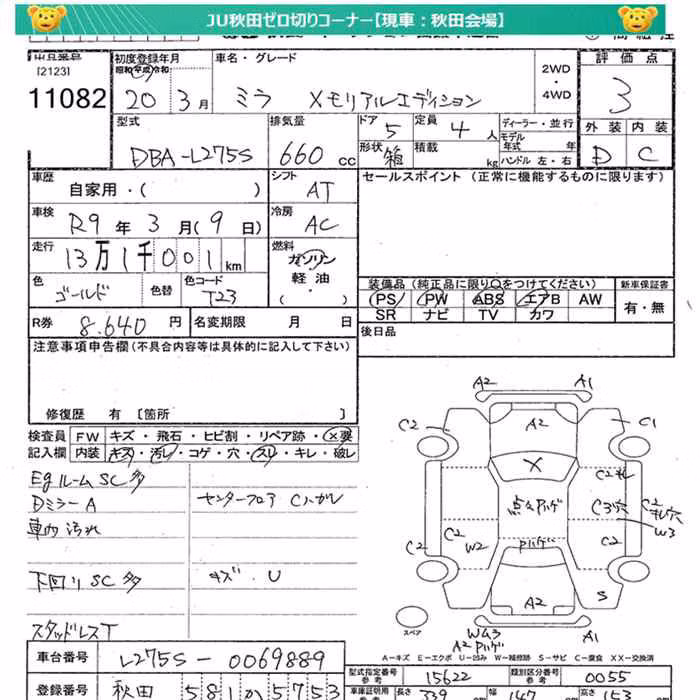 JU秋田ゼロ切りコーナー【現車：秋田会場】
出品番号
[2123]
11082
初度登録年月
昭和 平成 令和
20 3月
車名・グレード
ミラ Xモリアルエディション
2WD
・
4WD
評価点
3
外装 内装
D C
型式
DBA-L275S
排気量
660 cc
ドア 5
形状 箱
定員 4 人
積載 kg
ディーラー・並行
モデル年式 年
ハンドル 左・右
車歴
自家用・( )
シフト
AT
車検
R9年3月(9日)
冷房
AC
走行
13万1千001km
燃料
ガソリン
軽油
・( )
色
ゴールド
色替
色コード
T23
R券 8.640 円
名変期限 月 日
セールスポイント (正常に機能するものに限ります)
装備品 (純正品に限り○をつけてください)
PS PW ABS エアB AW
SR ナビ TV カワ
新車保証書
有・無
後日品
注意事項申告欄(不具合内容等は具体的に記入して下さい)
修復歴 有 [箇所 ]
検査員
記入欄
FW キズ・飛石・ヒビ割・リペア跡・X要
内装 キズ・汚レ・コゲ・穴・スレ・キレ・破レ
Egルーム SC 多
Dミラー A
車内汚れ
下回り SC 多
スタッドレスT
センターフロア Cハガレ
キズ・U
A2 A1
C2 A2 C1
X
C2
点々Pハゲ
C3穴
C2
W3
C2 W2
Pハゲ
C2
A2
S
スペア
WA3
A2Pハゲ
A1
A-キズ E-エクボ U-凹み W-補修跡 S-サビ C-腐食 XX-交換済
車台番号
L275S-0069889
登録番号
秋田 581か5753
型式指定番号
参考
15622
類別区分番号
参考
0055
車庫証明用
長さ 339
幅 147
高さ 153